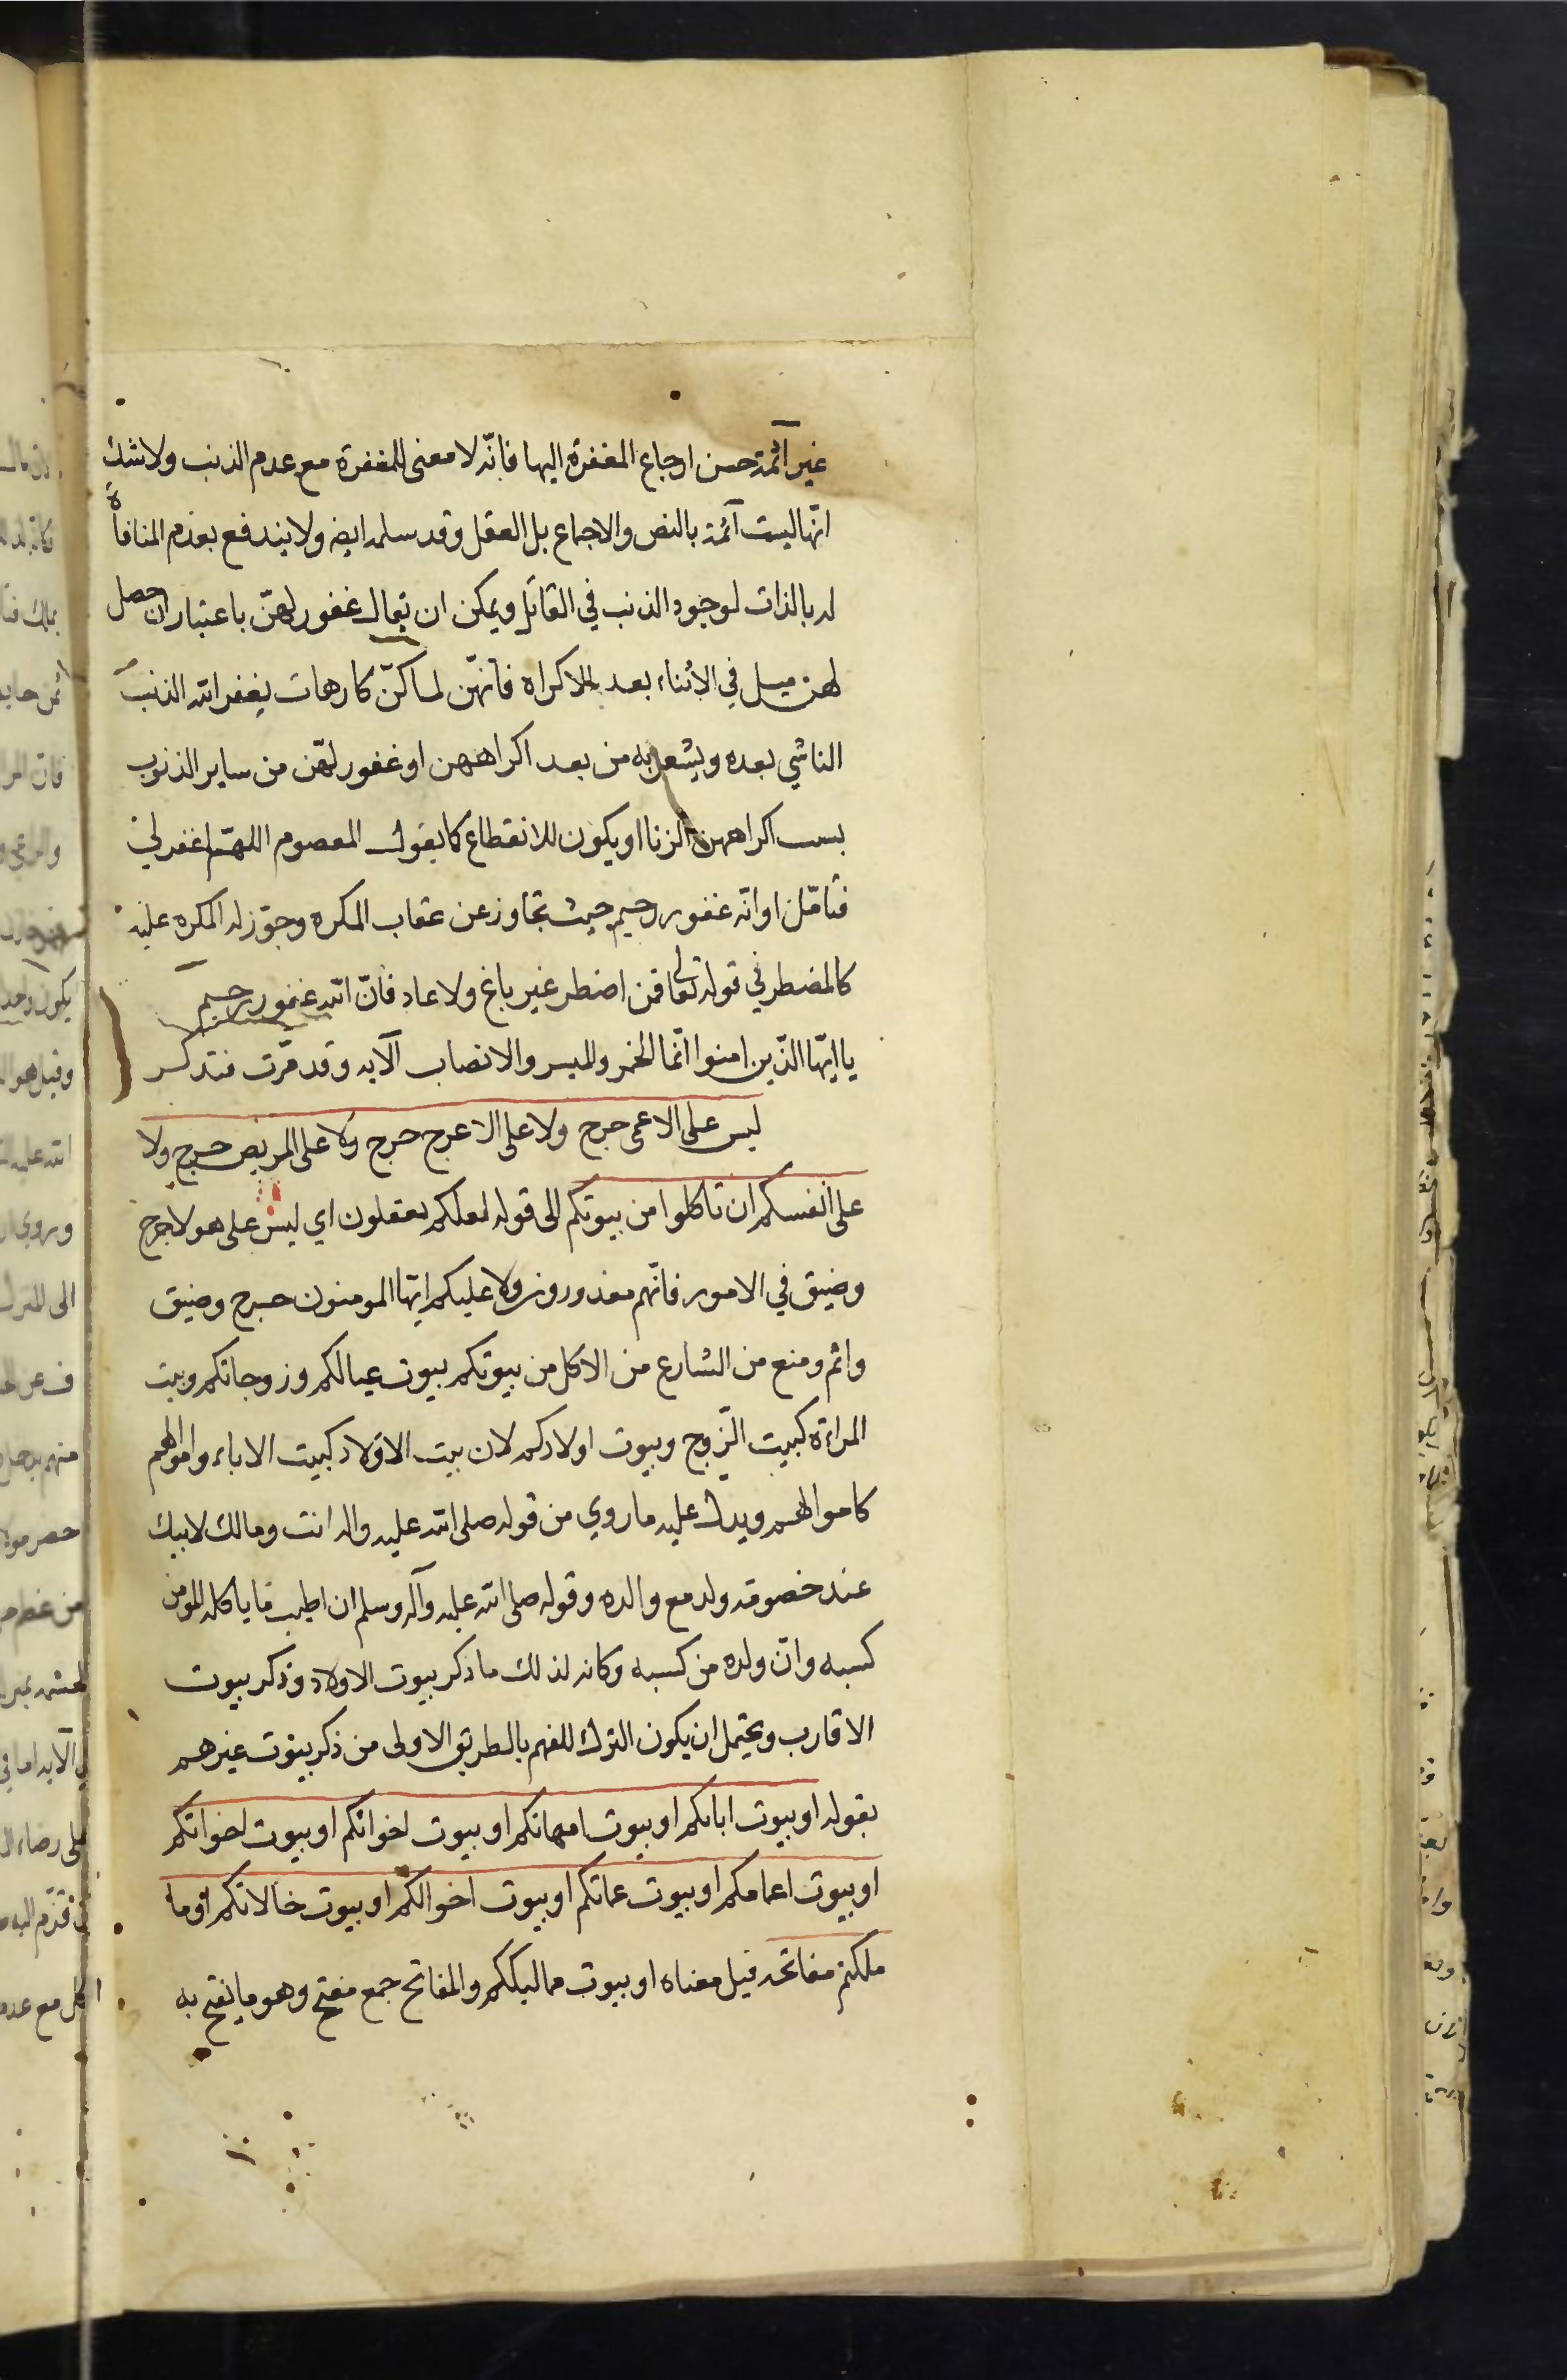 غير آثمة حسن ارجاع المغفرة اليها فانّه لا معنى للمغفرة مع عدم الذنب ولا شك
انّها ليست آثمة بالنص والاجماع بل العقل وقد سلمه ايضه ولا يندفع بعدم المنافاة
له بالذات لوجود الذنب في القاتل ويمكن ان يقال غفور لهنّ باعتبار ان حصل
لهن ميل في الاثناء بعد الاكراه فانّهن لما كنّ كارهات يغفر الله الذنب
الناشي بعده ويشعر به من بعد اكراههن او غفور لهّن من ساير الذنوب
بسبب اكراههن الزنا او يكون للانقطاع كما يقول المعصوم اللهّم اغفر لي
فتامّل او انّه غفور رحيم حيث تجاوز عن عقاب المكره وجوّز له المكره عليه
كالمضطر في قوله تعالى فمن اضطر غير باغ ولا عاد فانّ الله غفور رحيم
يا ايّها الذّين امنوا انّما الخمر والميسر والانصاب الآيه وقد مرّت فتذكر
ليس على الاعمى حرج ولا على الاعرج حرج ولا على المريض حرج ولا
على انفسكم ان تاكلوا من بيوتكم الى قوله لعلكم تعقلون اي ليس على هولا حرج
وضيق في الامور فانّهم معذورون ولا عليكم ايّها المومنون حرج وضيق
واثم ومنع من الشارع من الاكل من بيوتكم بيوت عيالكم وزوجاتكم وبيت
المراءة كبيت الزّوج وبيوت اولادكم لان بيت الاولاد كبيت الاباء واموالهم
كاموالهم ويدل عليه ما روي من قوله صلى الله عليه واله انت ومالك لابيك
عند خصومة ولد مع والده وقوله صلى الله عليه وآله وسلم ان اطيب ما ياكله المومن
كسبه وانّ ولده من كسبه وكانه لذلك ما ذكر بيوت الاولاد وذكر بيوت
الاقارب ويحتمل ان يكون الترك للفهم بالطريق الاولى من ذكر بيوت غيرهم
بقوله او بيوت ابائكم او بيوت امهاتكم او بيوت اخوانكم او بيوت اخواتكم
او بيوت اعمامكم او بيوت عماتكم او بيوت اخوالكم او بيوت خالاتكم او ما
ملكتم مفاتحه قيل معناه او بيوت مماليككم والمفاتح جمع مفتح وهو ما يفتح به